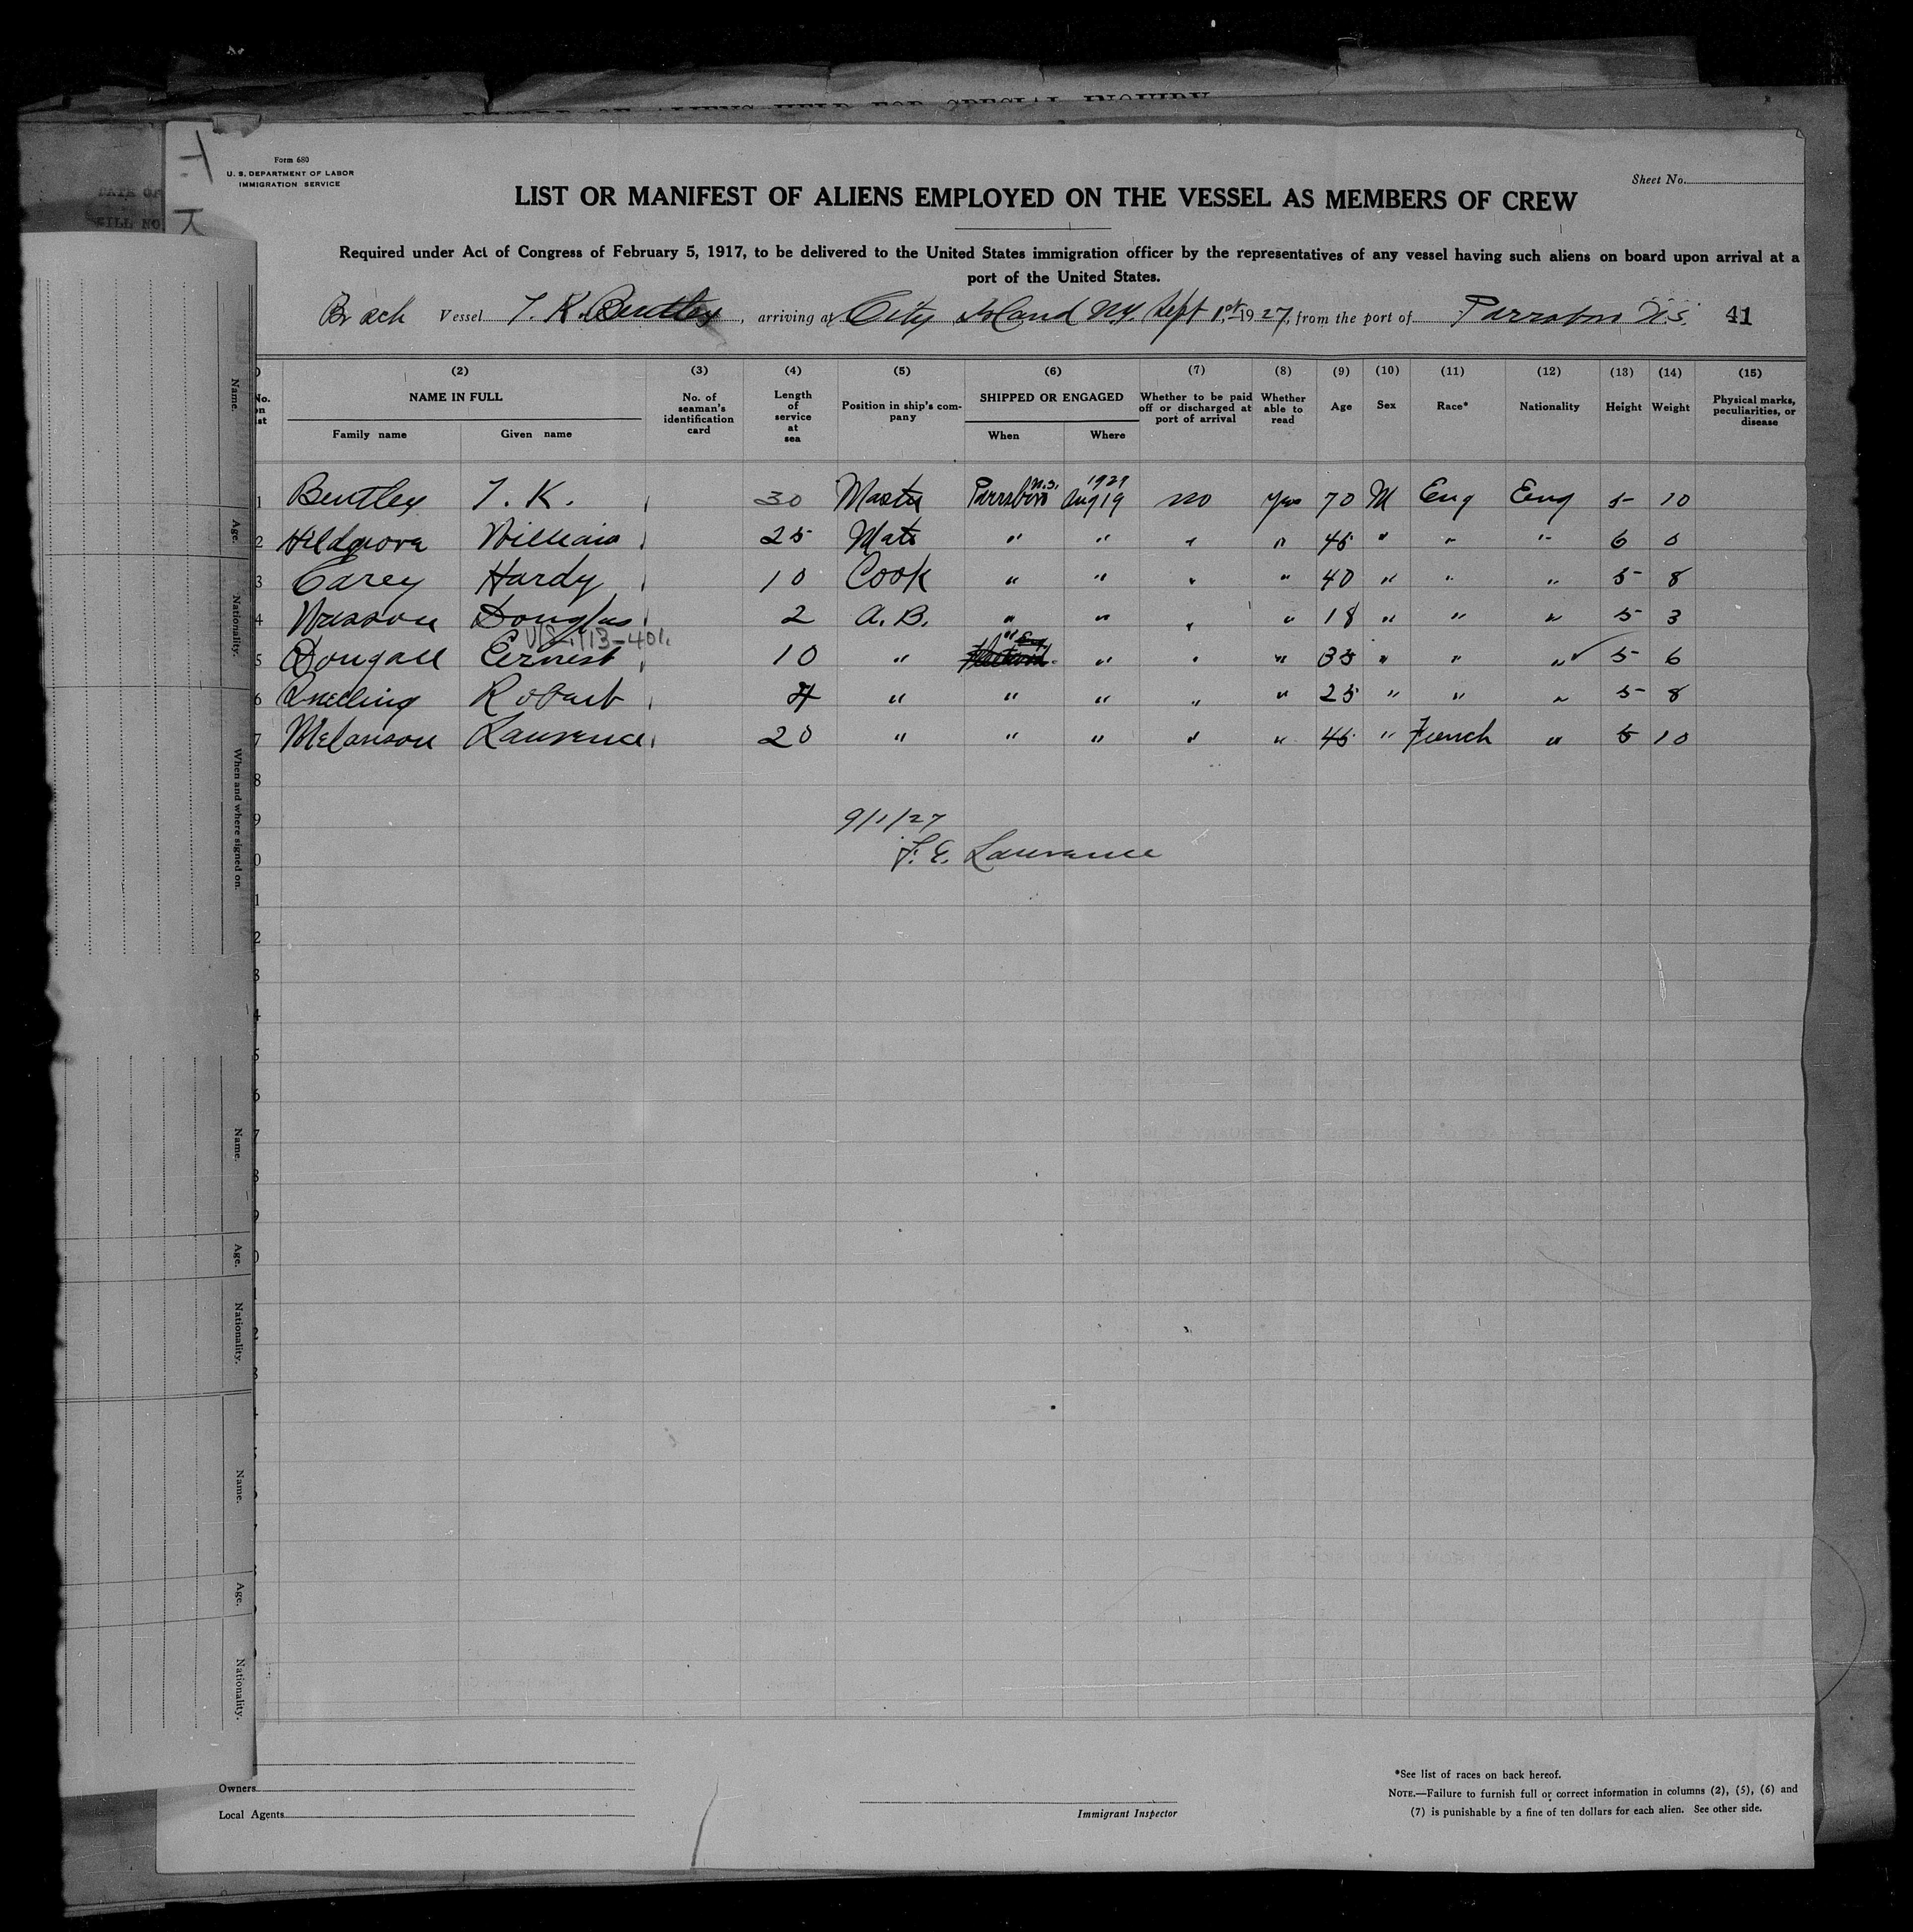 Form 680
U. S. DEPARTMENT OF LABOR
IMMIGRATION SERVICE
Sheet No.
LIST OR MANIFEST OF ALIENS EMPLOYED ON THE VESSEL AS MEMBERS OF CREW
Required under Act of Congress of February 5, 1917, to be delivered to the United States immigration officer by the representatives of any vessel having such aliens on board upon arrival at a
port of the United States.
Br sch Vessel T. K. Bentley, arriving at City Island NY. Sept 1st 1927, from the port of Parrsboro N.S. 41
(2) (3) (4) (5) (6) (7) (8) (9) (10) (11) (12) (13) (14) (15)
NAME IN FULL
Family name Given name
No. of seaman's identification card
Length of service at sea
Position in ship's company
SHIPPED OR ENGAGED
When Where
Whether to be paid off or discharged at port of arrival
Whether able to read
Age Sex Race* Nationality Height Weight
Physical marks, peculiarities, or disease
1 Bentley T. K. 30 Master Parrsboro N.S. Aug 19 1927 no yes 70 M Eng Eng 5 10
2 Hildgrove William 25 Mate " " " " 45 " " " 6 0
3 Carey Hardy 10 Cook " " " " 40 " " " 5 8
4 Wasson Douglas 2 A. B. " " " " 18 " " " 5 3
5 Dougall Ernest 10 " " " " " 35 " " " 5 6
6 Snelling Robert 4 " " " " " 25 " " " 5 8
7 Melanson Lawrence 20 " " " " " 45 " French " 5 10
8
9 9/1/27
F. E. Lawrence
Owners
Local Agents
Immigrant Inspector
*See list of races on back hereof.
NOTE.—Failure to furnish full or correct information in columns (2), (5), (6) and
(7) is punishable by a fine of ten dollars for each alien. See other side.
Name.
Age.
Nationality.
When and where signed on.
Name.
Age.
Nationality.
Name.
Age.
Nationality.